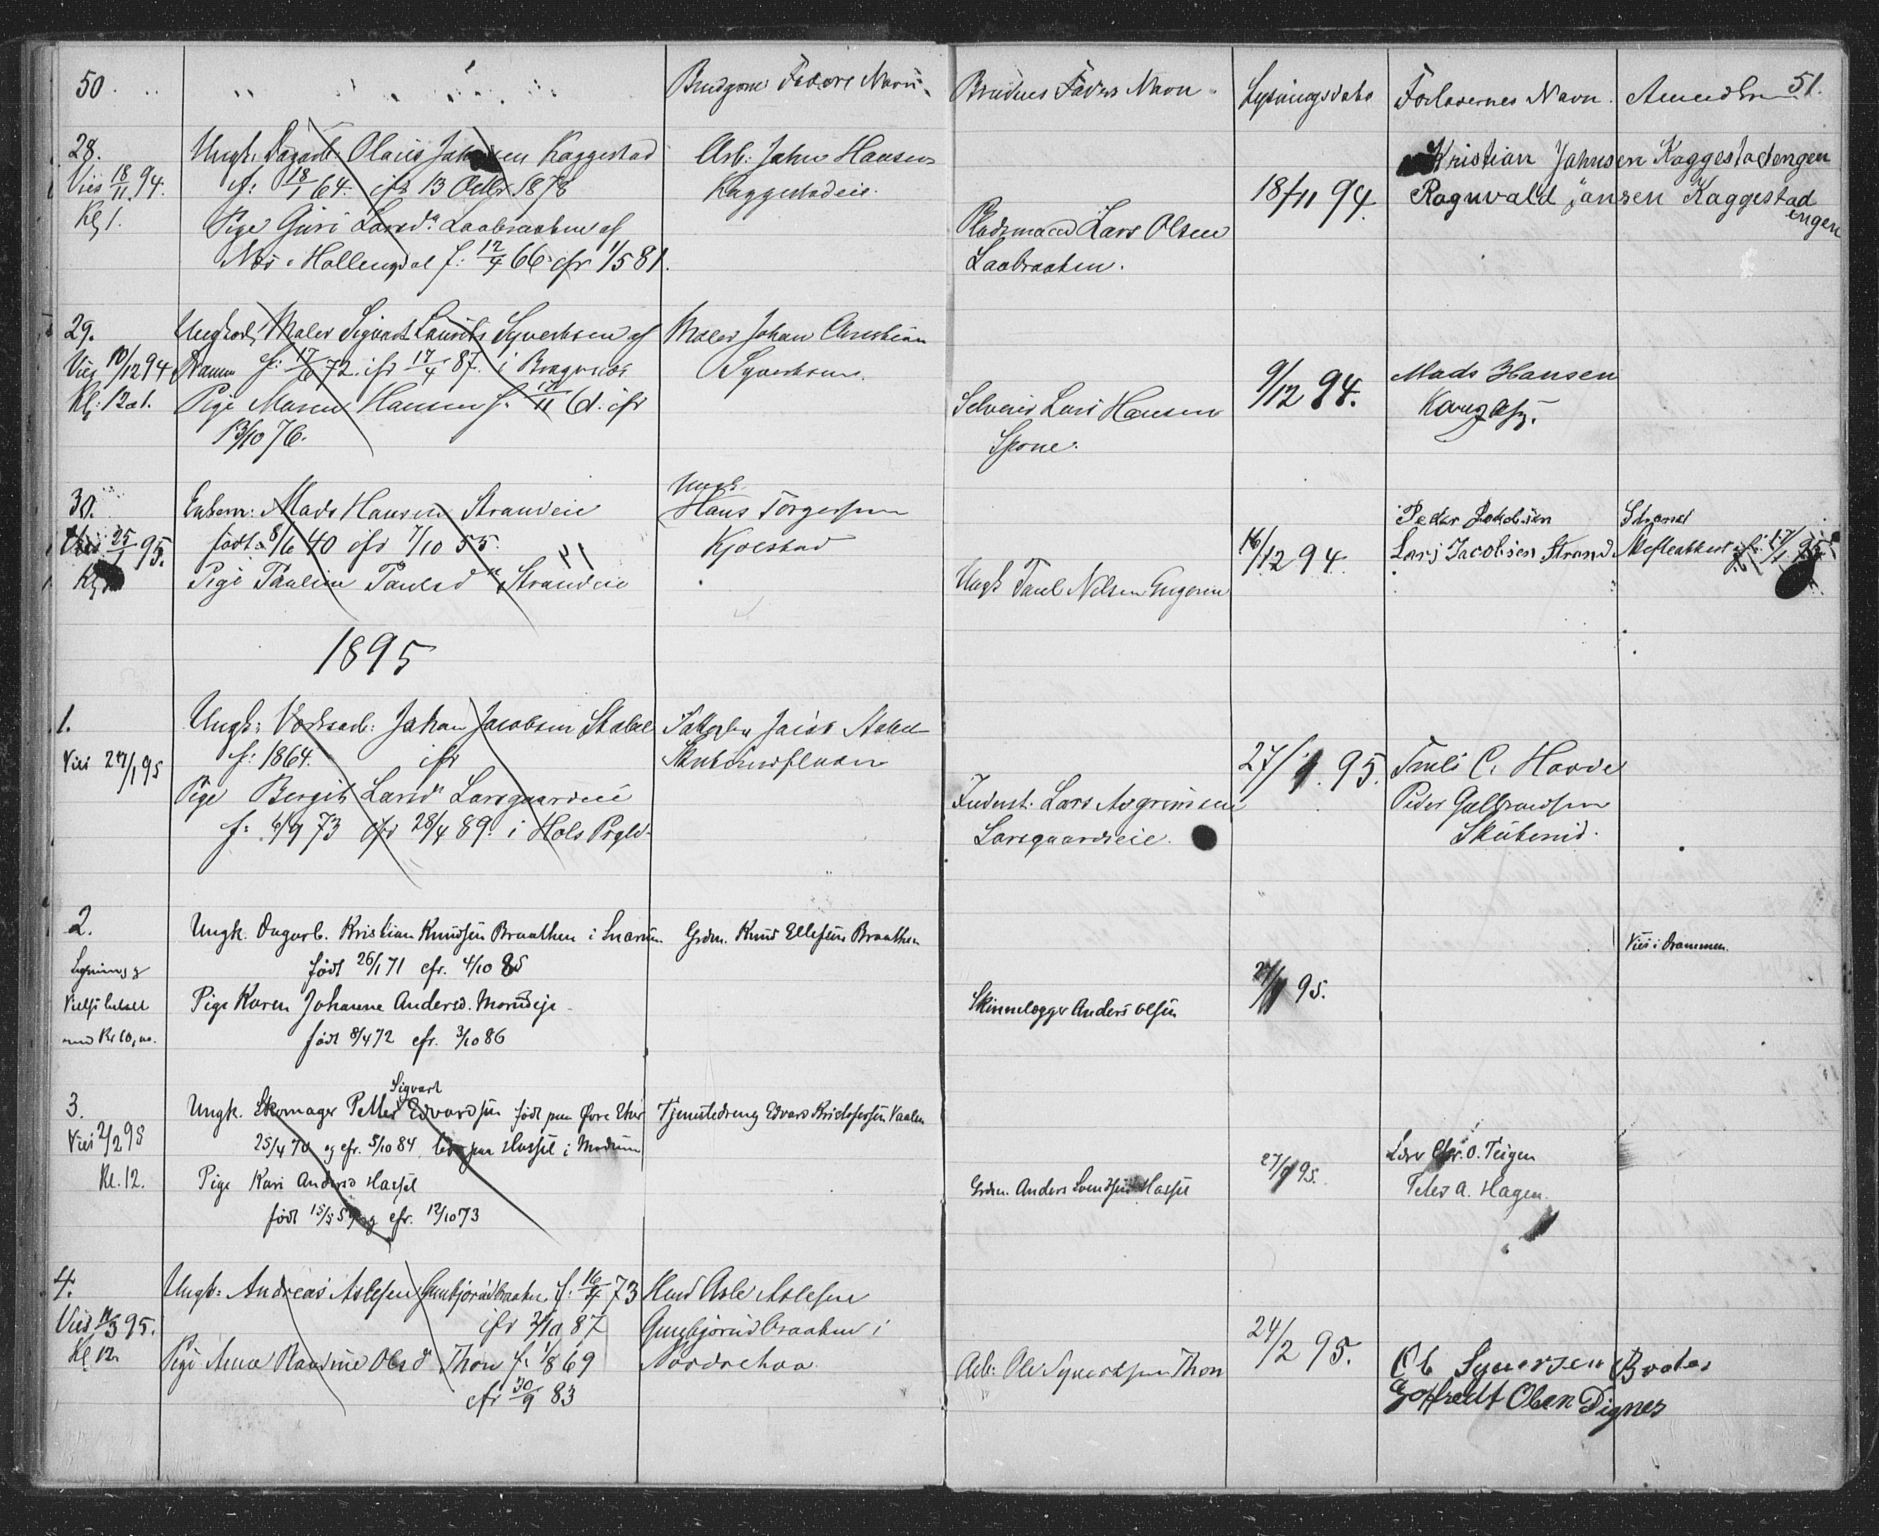 50.
Brudgoms Faders Navn.
Brudens Faders Navn.
Lysningsdato
Forlovernes Navn.
51.
28.
Viet 18/11 94.
Kl 1.
Ungk. Dagarb. Olaus Kaggestad
f: 18/1 64. cfr 13 Octbr 1878
Pige Guri Larsd. Laabraaten af
Næs i Hallingdal f: 12/4 66 cfr 1/5 81.
Arb: Jahn Hansen
Kaggestadeie.
Pladsmand Lars Olsen
Laabraaten.
18/11 94.
Kristian Jahnsen Kaggestadengen
Ragnvald Jansen Kaggestad
engen
29.
Viet 10/12 94
Kl: 12 a 1.
Ungkarl Maler Sigvart Laurits Syvertsen af
Dramn f: 17/6 72. cfr 17/4 87. i Bragernes
Pige Maren Hansen f. 11 61. cfr
13/10 76.
Maler Johan Christian
Syvertsen.
Selveier Lars Hansen
Skone.
9/12 94.
Mads Hansen
30.
Viet 25/1 95.
Kl
Enkem: Mads Hansen Strandeie
født 8/6 40 cfr 7/10 55.
Pige Pauline Paulsd. Strandeie
Ungk.
Hans Torgersen
Kjølstad
Ungk Paul Nilsen Engeren
16/12 94.
Peder Jakobsen
Lars Jacobsen Strand
Strand
Skifteattest af 17/1 95
1895
1.
Viet 27/1 95
Ungk: Værksarb: Johan Jacobsen Stabel
f: 1864. cfr
Pige Bergit Larsd. Larsgaardeie
f: 6/9 73 cfr 28/4 89. i Hols Prgld.
Jacob Stabel
Inderst. Lars Asgrimsen
Larsgaardseie.
27/1. 95.
Truls C. Hovde
Peder Gulbrandsen
Skuterud.
2.
Lysning og
Vielse betalt
med Kr 10,00.
Ungk. Dagarb. Kristian Knudsen Braathen i Snarum.
født 26/1 71 cfr. 4/10 85
Pige Karen Johanne Andersd. Morudeje
født 8/4 72 cfr. 3/10 86
Grdm. Knud Ellefsen Braathen
Skinnelægger Anders Olsen
27/1 95.
Viet i Drammen.
3.
Viet 2/2 95
Kl. 12.
Sigvart
Ungk. Skomager Petter Edvardsen født paa Øvre Eker
25/4 70 og cfr. 5/10 84 bor paa Hassel i Modum
Pige Kari Andersd Hassel
født 15/5 59 og cfr. 12/10 73
Tjenestedreng Edvard Kristofersen Vaalen
Grdm. Anders Svendsen Hassel
27/1 95.
Lars Chr. O. Teigen
Peter A. Hagen
4.
Viet 16/3 95.
Kl 12.
Ungk: Andreas Aslesen Gunbjørudbraaten f. 16/4 73
cfr 2/10 87
Pige Anne Randine Olsd. Thon f. 1/8 69
cfr 30/9 83
Hmd Asle Aslesen
Gunbjørudbraaten i
Norderhov
Arb: Ole Syvertsen Thon
24/2 95.
Ole Syversen Braaten
Gotfredt Olsen Dignes